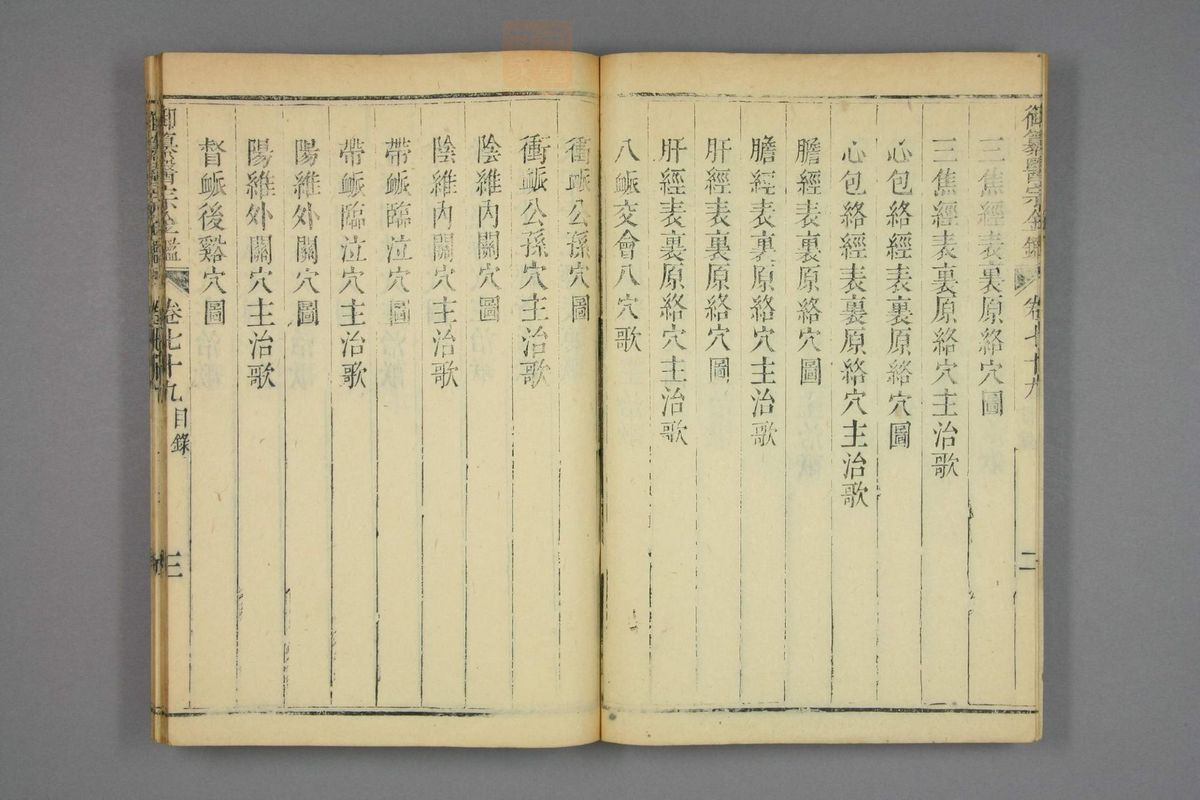 御纂醫宗金鑑 卷七十九 二
三焦經表裏原絡穴圖
三焦經表裏原絡穴主治歌
心包絡經表裏原絡穴圖
心包絡經表裏原絡穴主治歌
膽經表裏原絡穴圖
膽經表裏原絡穴主治歌
肝經表裏原絡穴圖
肝經表裏原絡穴主治歌
八䘑交會八穴歌
衝䘑公孫穴圖
衝䘑公孫穴主治歌
陰維內關穴圖
陰維內關穴主治歌
帶䘑臨泣穴圖
帶䘑臨泣穴主治歌
陽維外關穴圖
陽維外關穴主治歌
督䘑後谿穴圖
御纂醫宗金鑑 卷七十九 目錄 三